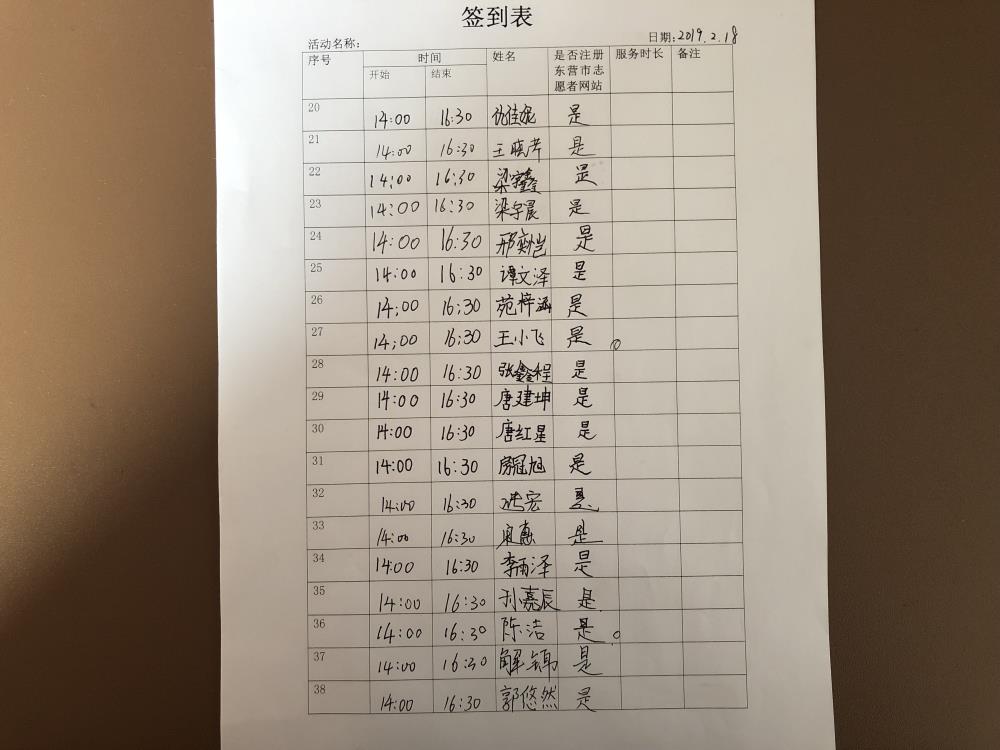 签到表
活动名称: 日期: 2019.2.18
序号 时间 姓名 是否注册东营市志愿者网站 服务时长 备注
开始 结束
20 14:00 16:30 是
21 14:00 16:30 王晓芳 是
22 14:00 16:30 梁宇鑫 是
23 14:00 16:30 梁宇晨 是
24 14:00 16:30 邢奕岂 是
25 14:00 16:30 谭文泽 是
26 14:00 16:30 苑梓涵 是
27 14:00 16:30 王小飞 是
28 14:00 16:30 张鑫程 是
29 14:00 16:30 唐建坤 是
30 14:00 16:30 唐红星 是
31 14:00 16:30 房冠旭 是
32 14:00 16:30 是
33 14:00 16:30 是
34 14:00 16:30 李雨泽 是
35 14:00 16:30 孙嘉辰 是
36 14:00 16:30 陈洁 是
37 14:00 16:30 解锦 是
38 14:00 16:30 郭悠然 是